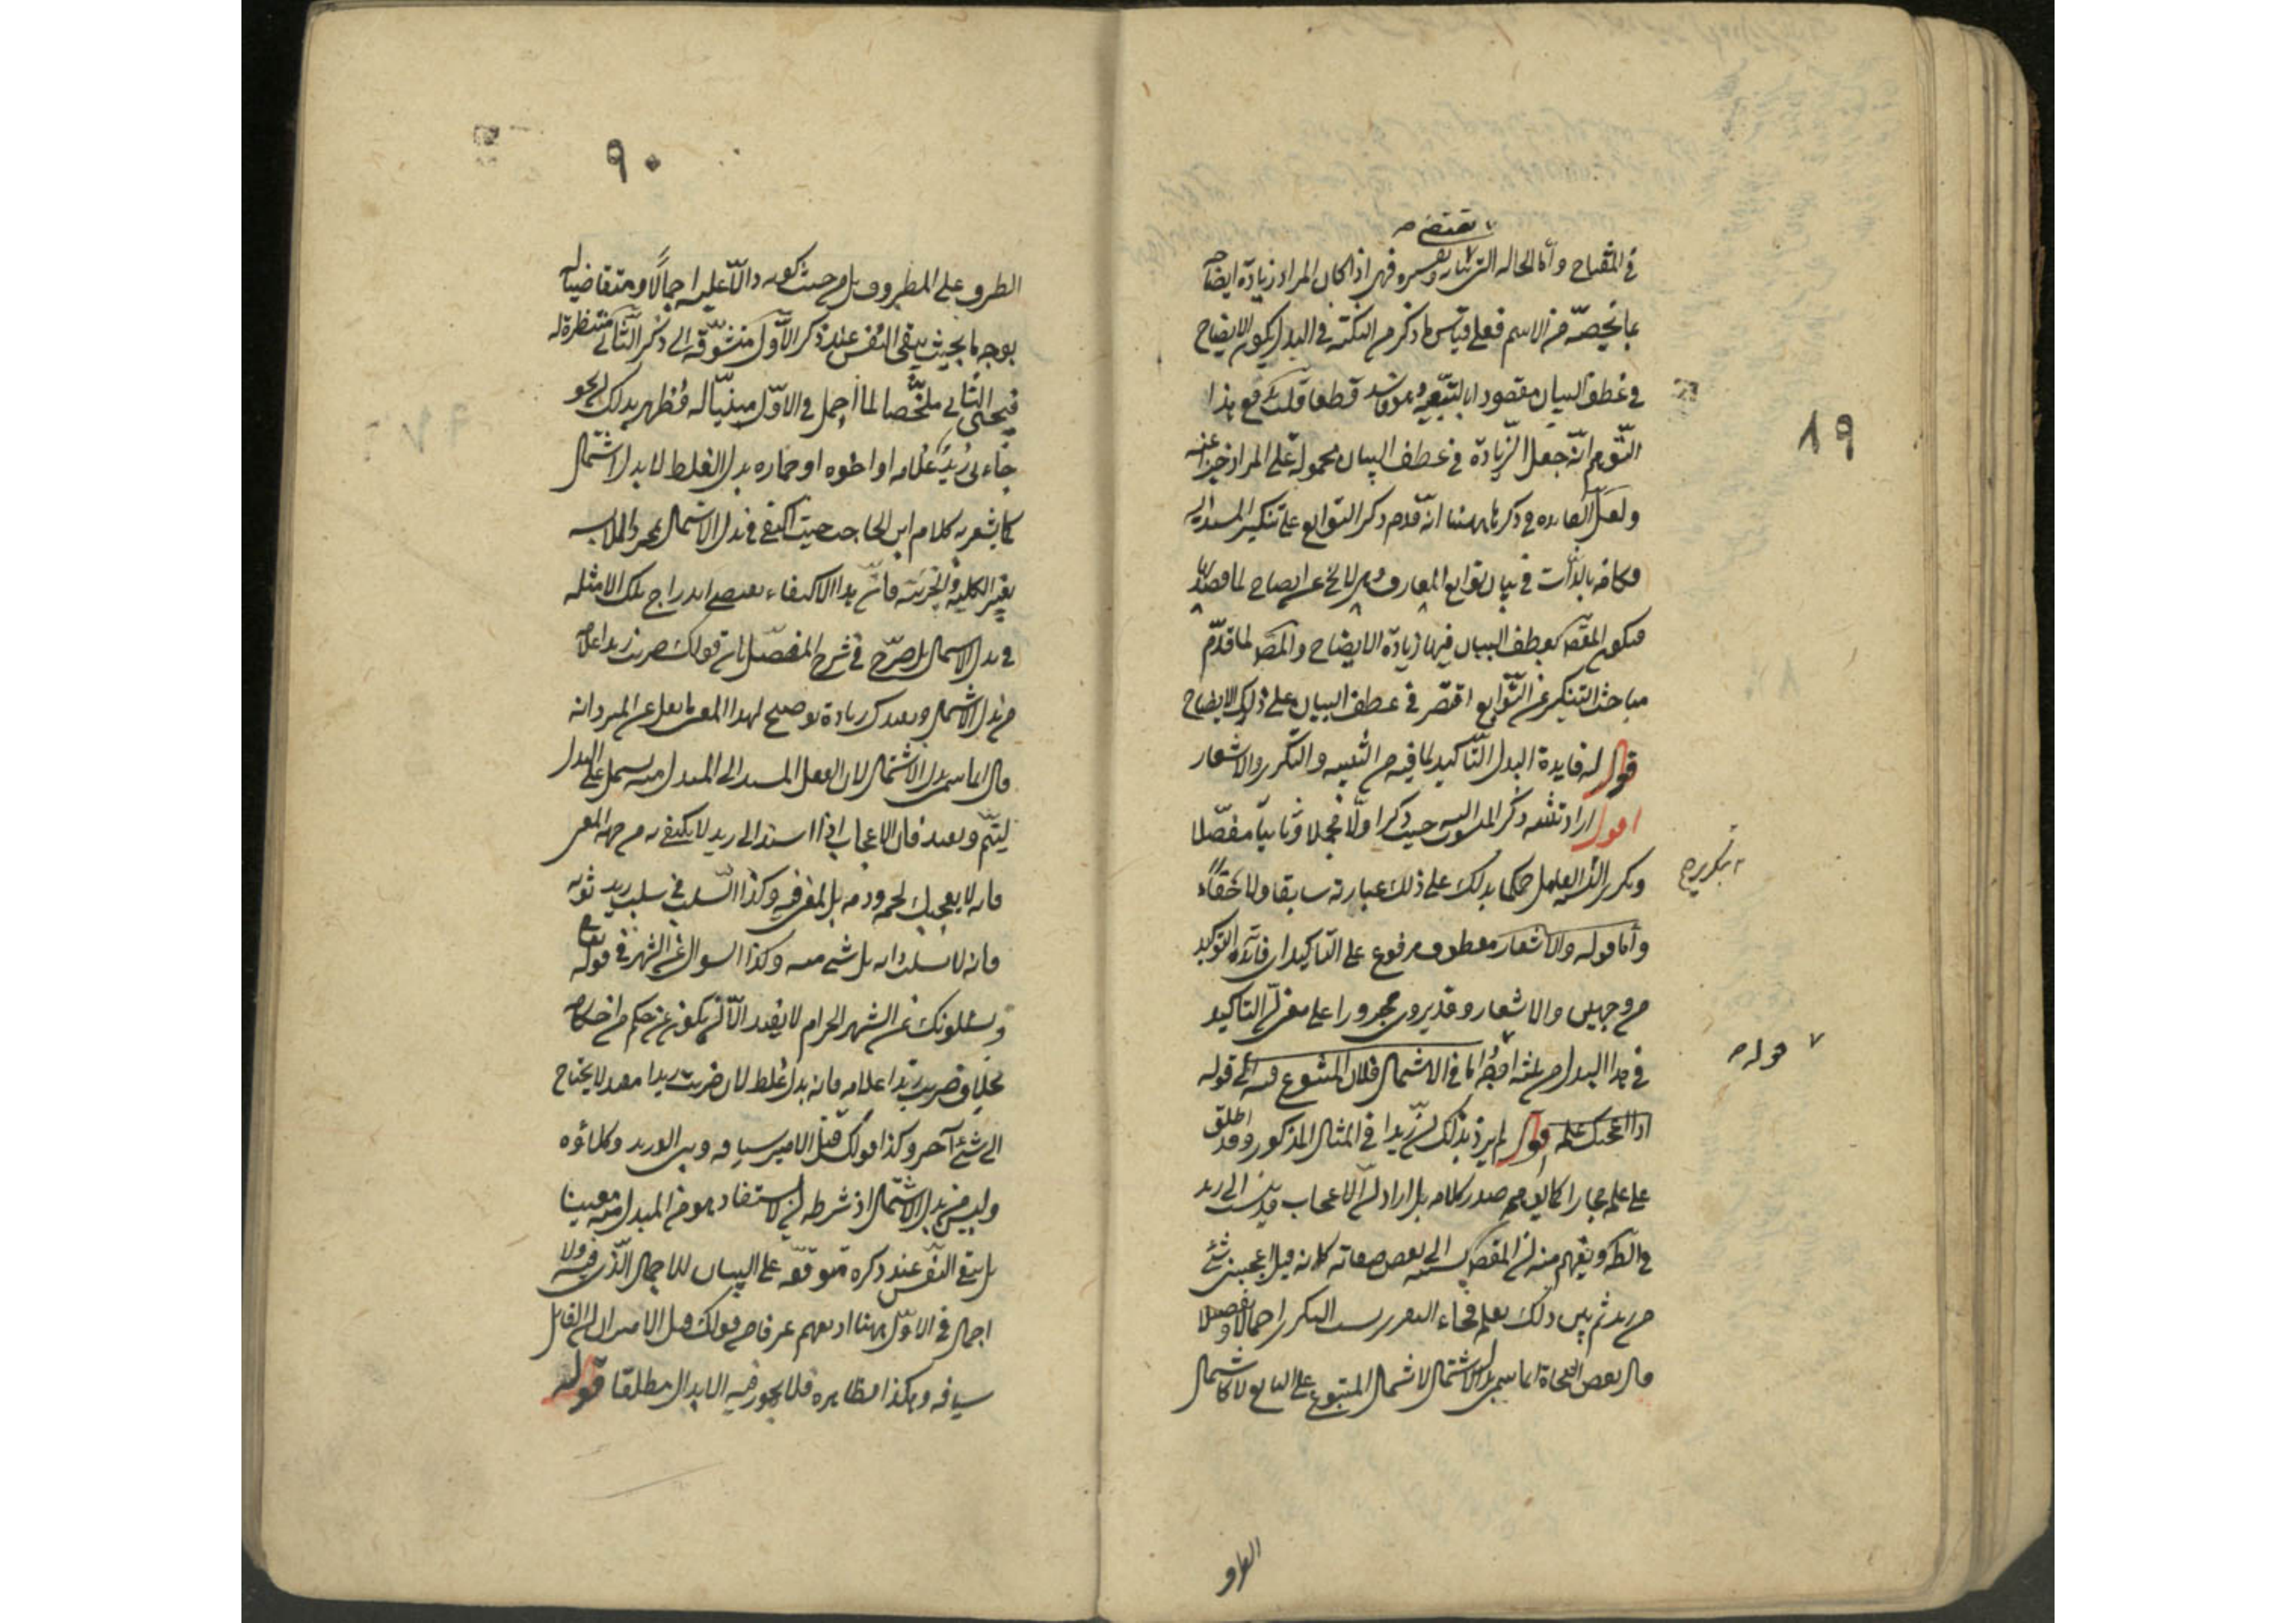 ٨٩
تقتضى
في المفتاح وأما الحالة التي تقتضى بيانه وتفسيره فهي اذا كان المراد زيادة ايضاحه
بما يخصه من الاسم فعلى قياس ما ذكر من النكتة في البدل يكون الايضاح
في عطف البيان مقصودا بالتبعية وهو فاسد قطعا قلت يدفع هذا
التوهم انه جعل الزيادة في عطف البيان محمولة على المراد خبرا عنه
ولعل الفائدة في ذكرها ههنا انه قدم ذكر التوابع على تنكير المسند اليه
فكانه بالذات في بيان توابع المعارف وهي لا تخلو عن ايضاح لما قصد بها
فيكون المقصود بعطف البيان فيها زيادة الايضاح والمص لما قدم
مباحث التنكير عن التوابع اقتصر في عطف البيان على ذلك الايضاح
قوله فايدة البدل التأكيد لما فيه من التثنية والتكرير والاشعار
اقول اراد تثنية ذكر المنسوب اليه حيث ذكر اولا مجملا وثانيا مفصلا
وتكرير العامل حكما يدلك على ذلك عبارته سابقا ولاحقا
تكريره
وأما قوله والاشعار معطوف مرفوع على التأكيد اى فائدة التوكيد
من وجهين والاشعار وقد يروى مجرورا على معنى ان التاكيد
في هذا البدل من ثلثة اوجه اما في الاشتمال فلان المتبوع فيه الى قوله
قوله
اذا اعجبك علمه اقول لم يرد بذلك ان زيدا في المثال المذكور وقد اطلق
على علمه مجازا كما يوهمه صدر كلامه بل اراد ان الاعجاب قد نسب الى زيد
في الظ ويفهم منه ان المقص نسبته الى بعض صفاته كانه قيل اعجبنى شئ
من زيد ثم بين ذلك بعلمه فجاء التقرير بسبب التكرير اجمالا وتفصيلا
قال بعض النحاة انما سمى بدل الاشتمال لاشتمال المتبوع على التابع لا كاشتمال
الظرف
٩٠
الظرف على المظروف بل من حيث كونه دالا عليه اجمالا ومتقاضيا له
بوجه ما بحيث يبقى النفس عند ذكر الاول متشوقة الى ذكر الثانى منتظرة له
فيجئ الثانى ملخصا لما اجمل في الاول مبينا له فظهر بذلك ان نحو
جاءنى زيد غلامه او اخوه او حماره بدل الغلط لا بدل الاشتمال
كما يشعر به كلام ابن الحاجب حيث اكتفى في بدل الاشتمال بمجرد الملابسة
بغير الكلية والجزئية فان هذا الاكتفاء يقتضى اندراج تلك الامثلة
في بدل الاشتمال بل صرح في شرح المفصل بان قولك ضربت زيدا غلامه
من بدل الاشتمال ويفيدك زيادة توضيح لهذا المعنى ما نقل عن المبرد انه
قال انما سمى بدل الاشتمال لان الفعل المسند الى المبدل منه يشتمل على البدل
ليتم ويفيد فان الاعجاب اذا اسند الى زيد لا يكتفى به من جهة المعنى
فانه لا يعجبك لحمه ودمه بل لمعنى فيه وكذا السلب في سلب زيد ثوبه
فانه لا يسلب ذاته بل شئ منه وكذا السوال عن الشهر في قوله تعالى
ويسئلونك عن الشهر الحرام لا يفيد الا ان يكون عن حكم من احكامه
بخلاف ضربت زيدا غلامه فانه بدل غلط لان ضربت زيدا مفيد لا يحتاج
الى شئ آخر وكذا قولك قتل الامير سيافه وبنى الوزير وكلاؤه
وليس من بدل الاشتمال اذ شرطه ان لا يستفاد هو من المبدل منه معينا
بل تبقى النفس عند ذكره متوقفة على البيان للاجمال الذى فيه ولا
اجمال في الاول ههنا اذ يفهم عرفا من قولك قتل الامير ان القاتل
سيافه وهكذا نظايره فلا يجوز فيه الابدال مطلقا قوله